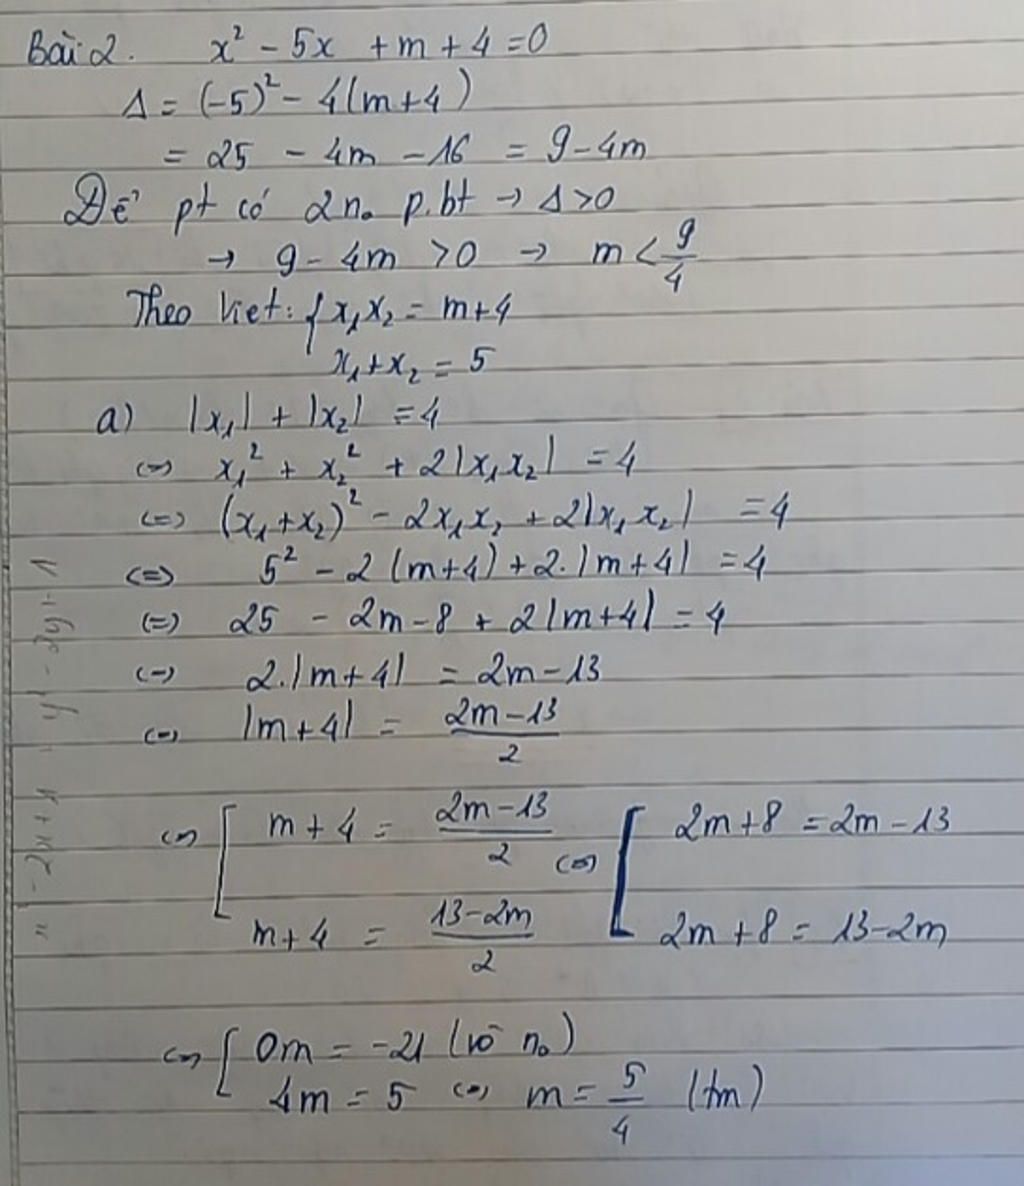 Bài 2. x² - 5x + m + 4 = 0
Δ = (-5)² - 4(m+4)
= 25 - 4m - 16 = 9 - 4m
Để pt có 2 n₀ p.bt → Δ > 0
→ 9 - 4m > 0 → m < 9/4
Theo Viet: { x₁x₂ = m+4
x₁+x₂ = 5
a) |x₁| + |x₂| = 4
(=) x₁² + x₂² + 2|x₁x₂| = 4
(=) (x₁+x₂)² - 2x₁x₂ + 2|x₁x₂| = 4
(=) 5² - 2(m+4) + 2.|m+4| = 4
(=) 25 - 2m - 8 + 2|m+4| = 4
(=) 2.|m+4| = 2m - 13
(=) |m+4| = (2m-13)/2
(=) [ m+4 = (2m-13)/2 (=) [ 2m+8 = 2m-13
m+4 = (13-2m)/2 2m+8 = 13-2m
(=) [ 0m = -21 (vô n₀)
4m = 5 (=) m = 5/4 (tm)